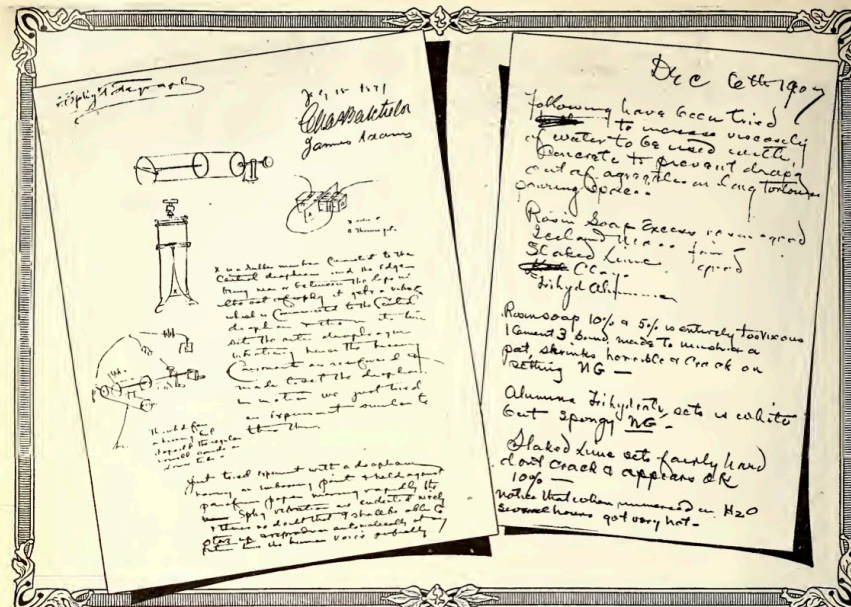 Speaking Telegraph
July 18 1877
Chas Batchelor
James Adams
X is a rubber membrane connected to the
central diaphragm and the edge
being near or between the lips in
the act of it gets a vibration
which is communicated to the central
diaphragm and this in turn
sets the outer diaphragm
vibrating hence the hissing
consonants are reinforced &
made to set the diaphragm
in motion we just tried
an experiment similar to
this one.
Just tried experiment with a diaphragm
having an embossing point & held against
paraffin paper moving rapidly the
Spkg vibrations are indented nicely
& there is no doubt that I shall be able to
store up & reproduce automatically at any
future time the human voice perfectly
Dec 6th 1907
Following have been tried
to increase viscosity
of water to be used with
Concrete to prevent dropping
out of aggregates in long tortuous
pouring spaces.
Rosin Soap Excess rosin good
Iceland Moss fair
Slaked Lime good
Clay
Trihyd Alumina
Rosin soap 10% & 5% is entirely too viscous
1 Cement 3 Sand made to mush in a
pat, shrinks horrible & Crack on
setting NG —
Alumina Trihydrate sets is white
but spongy NG -
Slaked Lime sets fairly hard
dont crack & appears OK
10% —
Notice that when immersed in H2O
several hours got very hot -